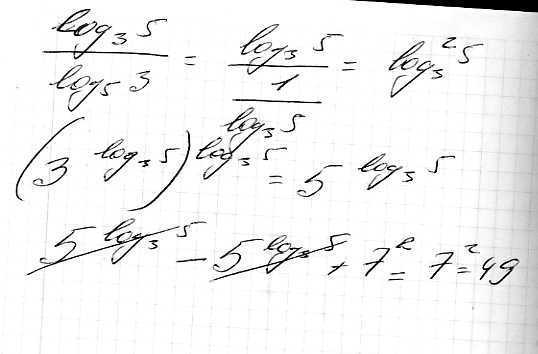 log₃ 5 / log₅ 3 = log₃ 5 / (1 / log₃ 5) = log₃² 5
(3^(log₃ 5))^(log₃ 5) = 5^(log₃ 5)
5^(log₃ 5) − 5^(log₃ 5) + 7² = 7² = 49